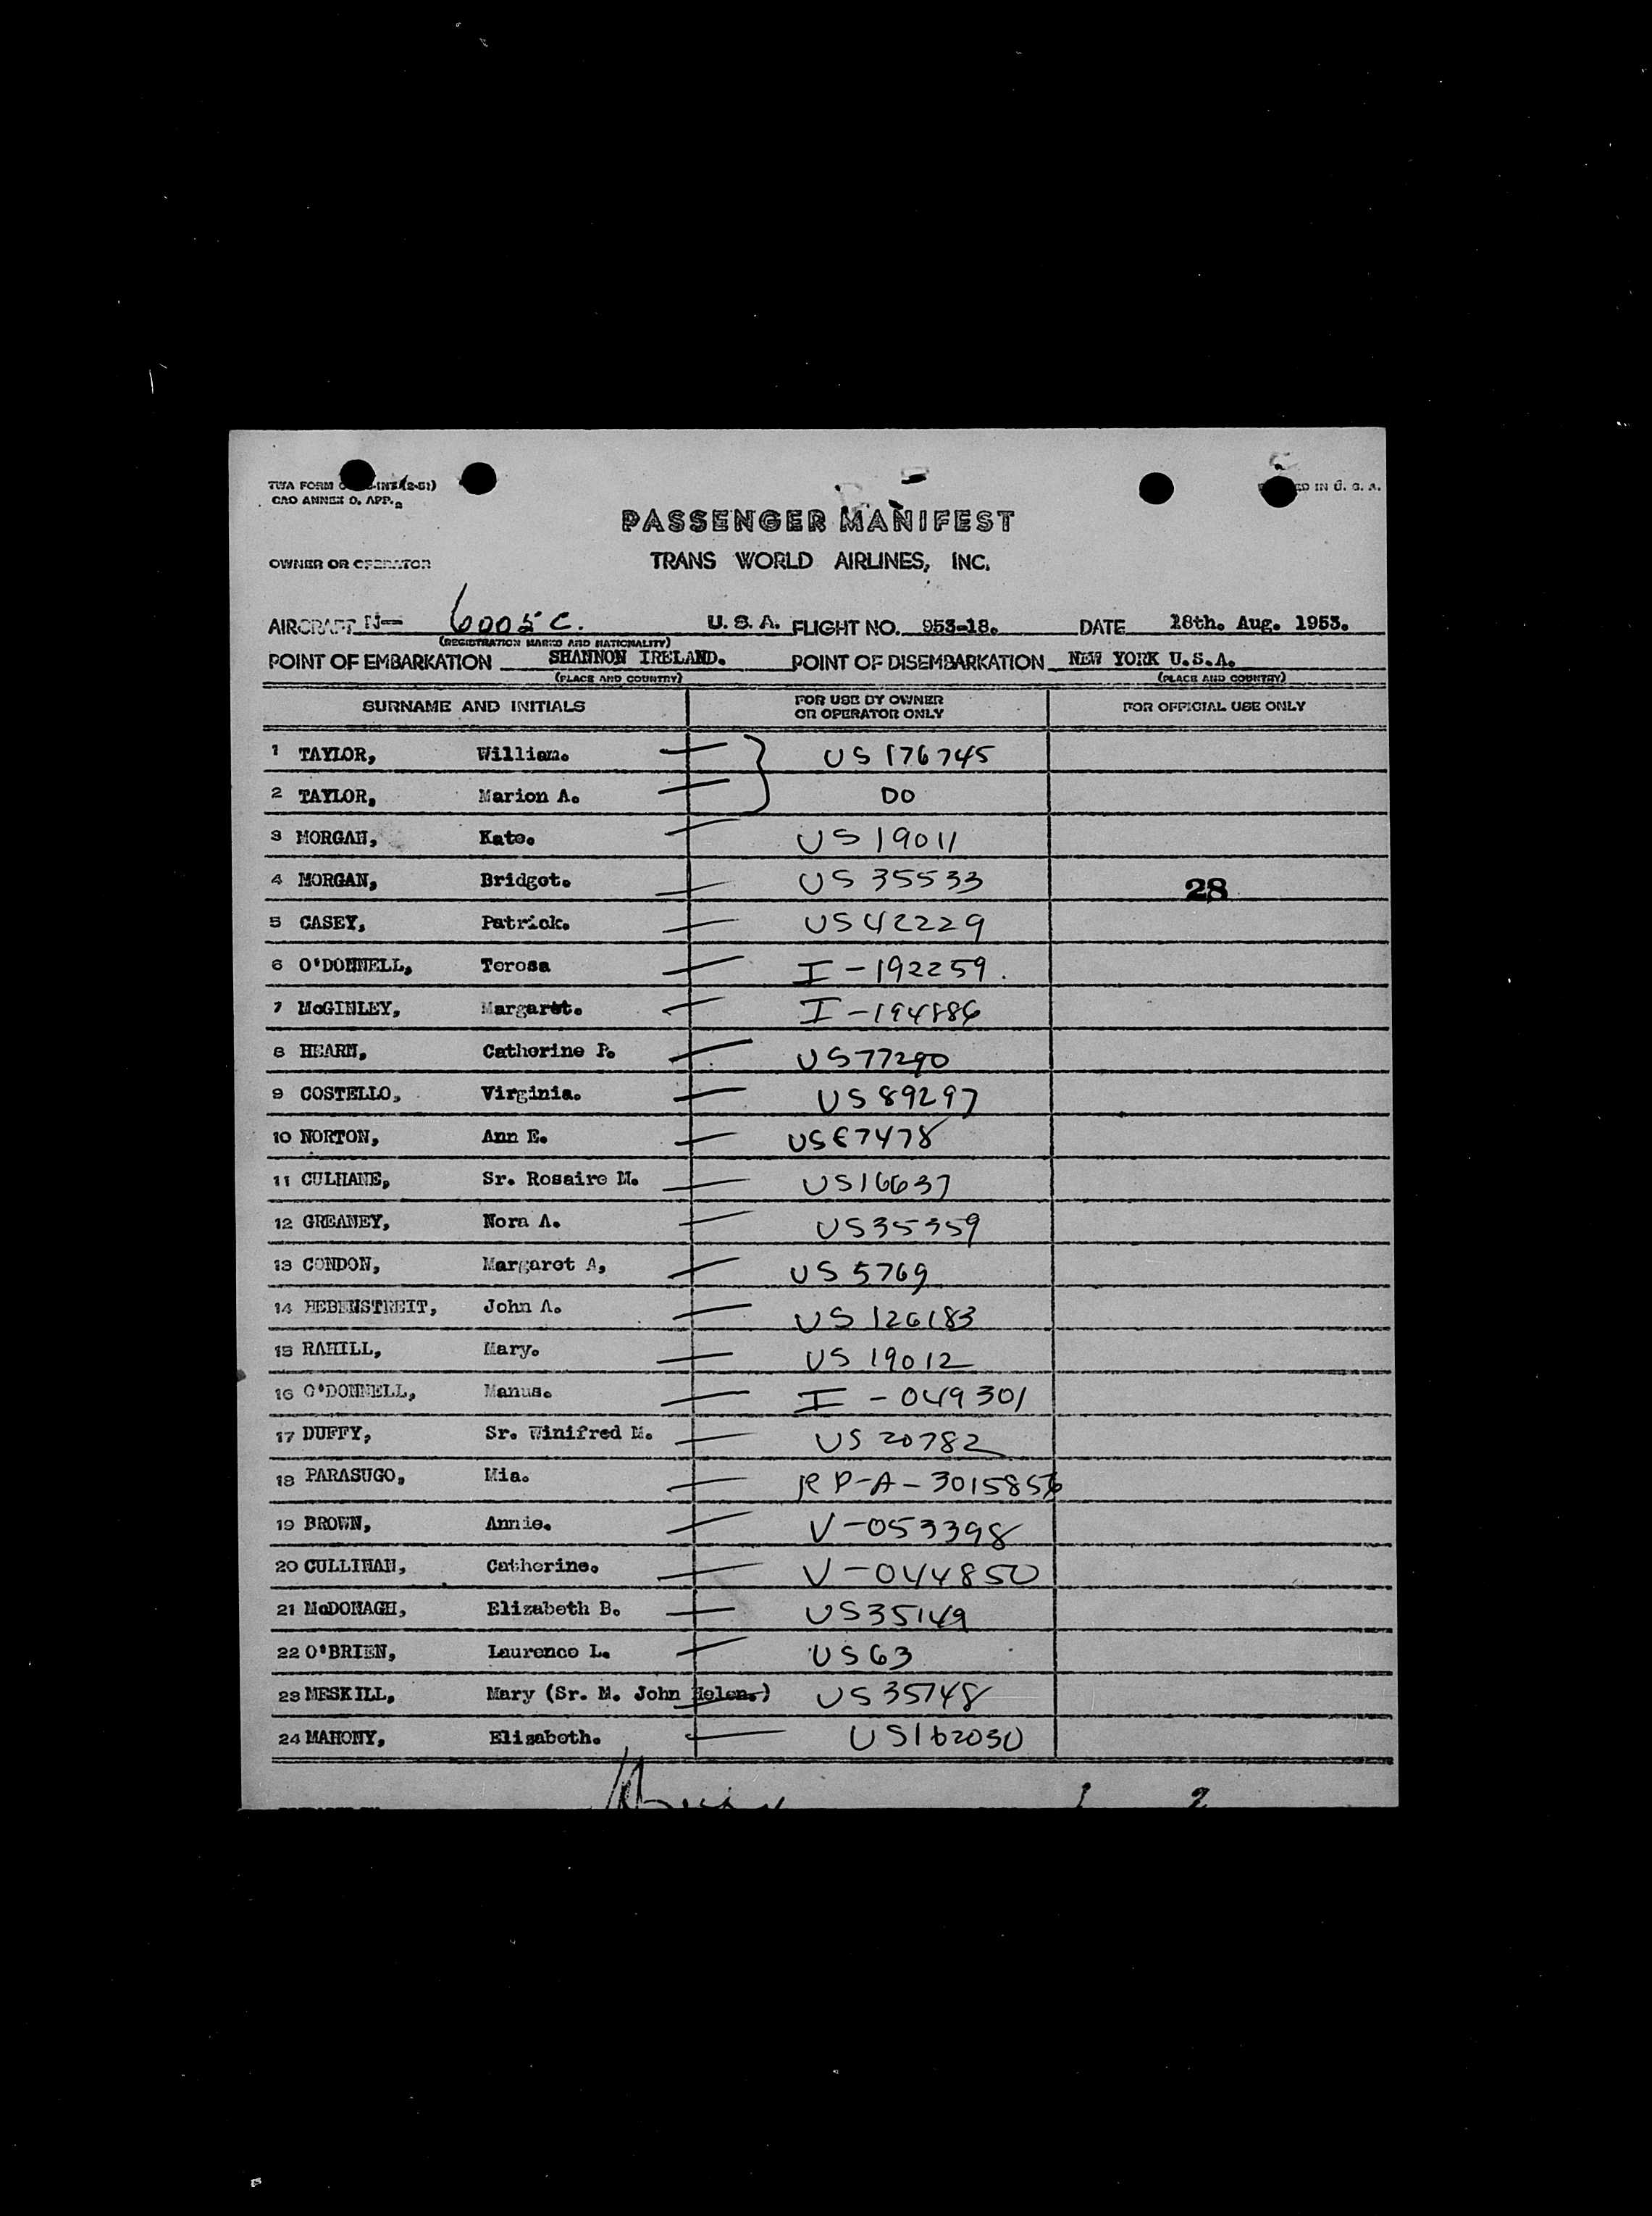 TWA FORM
CAO ANNEX 9, APP. 2
IN U. S. A.
PASSENGER MANIFEST
OWNER OR OPERATOR TRANS WORLD AIRLINES, INC.
AIRCRAFT N— 6005C. U. S. A. FLIGHT NO. 953-18. DATE 18th. Aug. 1953.
(REGISTRATION MARKS AND NATIONALITY)
POINT OF EMBARKATION SHANNON IRELAND. POINT OF DISEMBARKATION NEW YORK U.S.A.
(PLACE AND COUNTRY) (PLACE AND COUNTRY)
SURNAME AND INITIALS FOR USE BY OWNER OR OPERATOR ONLY FOR OFFICIAL USE ONLY
1 TAYLOR, William. US 176745
2 TAYLOR, Marion A. DO
3 MORGAN, Kate. US 19011
4 MORGAN, Bridget. US 35533 28
5 CASEY, Patrick. US 42229
6 O'DONNELL, Teresa I-192259.
7 McGINLEY, Margaret. I-194886
8 HEARN, Catherine P. US77290
9 COSTELLO, Virginia. US 89297
10 NORTON, Ann E.
11 CULHANE, Sr. Rosaire M. US16637
12 GREANEY, Nora A. US35359
13 CONDON, Margaret A, US 5769
14 HEBENSTREIT, John A. US 126183
15 RAHILL, Mary. US 19012
16 O'DONNELL, Manus. I - 049301
17 DUFFY, Sr. Winifred M. US 20782
18 PARASUGO, Mia. RP-A-
19 BROWN, Annie. V-053398
20 CULLINAN, Catherine. V-044850
21 McDONAGH, Elizabeth B. US35149
22 O'BRIEN, Laurence L. US63
23 MESKILL, Mary (Sr. M. John Helen.) US 35748
24 MAHONY, Elizabeth. US162030